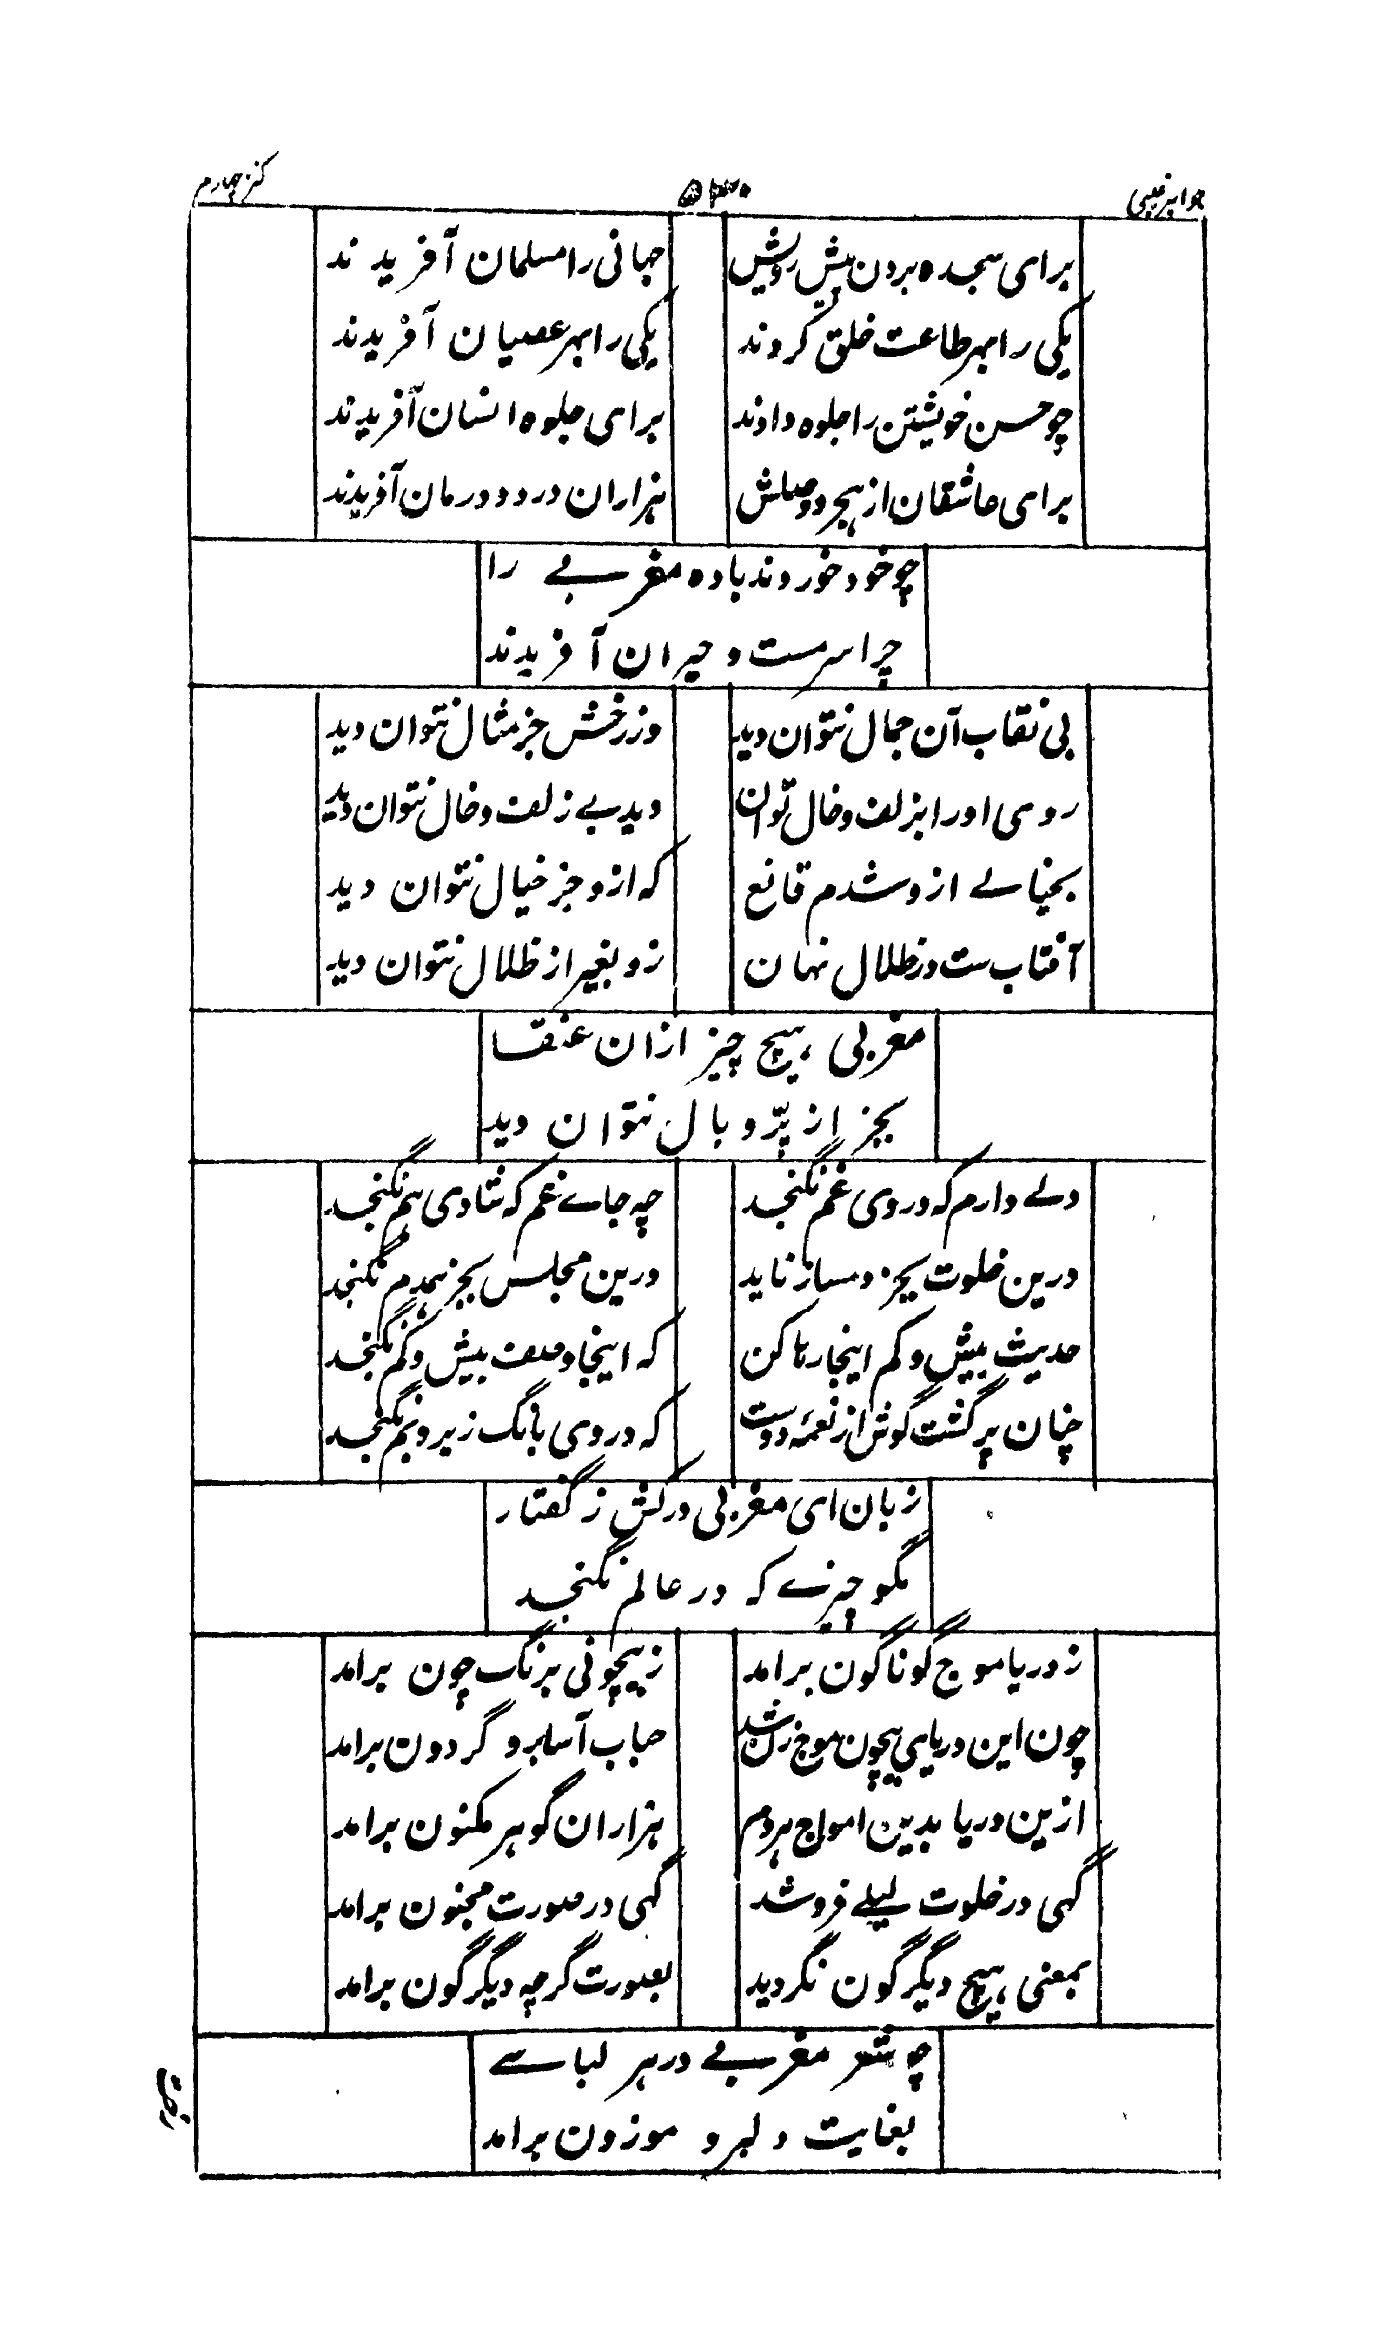 جواهر غیبی ۵۳۰ کنز چهارم
برای سجده بردن پیش رویش جهانی را مسلمان آفریدند
یکی را بهر طاعت خلق کردند یکی را بهر عصیان آفریدند
چو حسن خویشتن را جلوه دادند برای جلوه انسان آفریدند
برای عاشقان از هجر و وصلش هزاران درد و درمان آفریدند
چو خود خوردند باده مغربے را
چرا سرمست و حیران آفریدند
بی نقاب آن جمال نتوان دید وز رخش جز مثال نتوان دید
روی او را بزلف و خال توان دید بے زلف و خال نتوان دید
بخیالے ازو شدم قانع که ازو جز خیال نتوان دید
آفتاب ست در ظلال نهان زو بغیر از ظلال نتوان دید
مغربی هیچ چیز ازان عنقا
بجز از پرّ و بال نتوان دید
دلے دارم که در وی غم نگنجد چه جاے غم که شادی هم نگنجد
درین خلوت بجز دمساز ناید درین مجلس بجز همدم نگنجد
حدیث بیش و کم اینجا رها کن که اینجا وصف بیش و کم نگنجد
چنان پر گشت گوش از نغمهٔ دوست که در وی بانگ زیر و بم نگنجد
زبان ای مغربی درکش ز گفتار
مگو چیزے که در عالم نگنجد
ز دریا موج گوناگون برامد ز بیچونی برنگ چون برامد
چون این دریای بیچون موج زن شد حباب آسا برو گردون برامد
ازین دریا بدین امواج هردم هزاران گوهر مکنون برامد
گهی در خلوت لیلے فرو شد گهی در صورت مجنون برامد
بمعنی هیچ دیگرگون نگردید بصورت گرچه دیگرگون برامد
چو شعر مغربے در هر لباسے
بغایت دلبر و موزون برامد